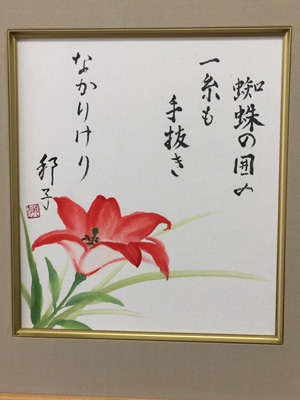 蜘蛛の囲の
一糸も
手抜き
なかりけり
邦子